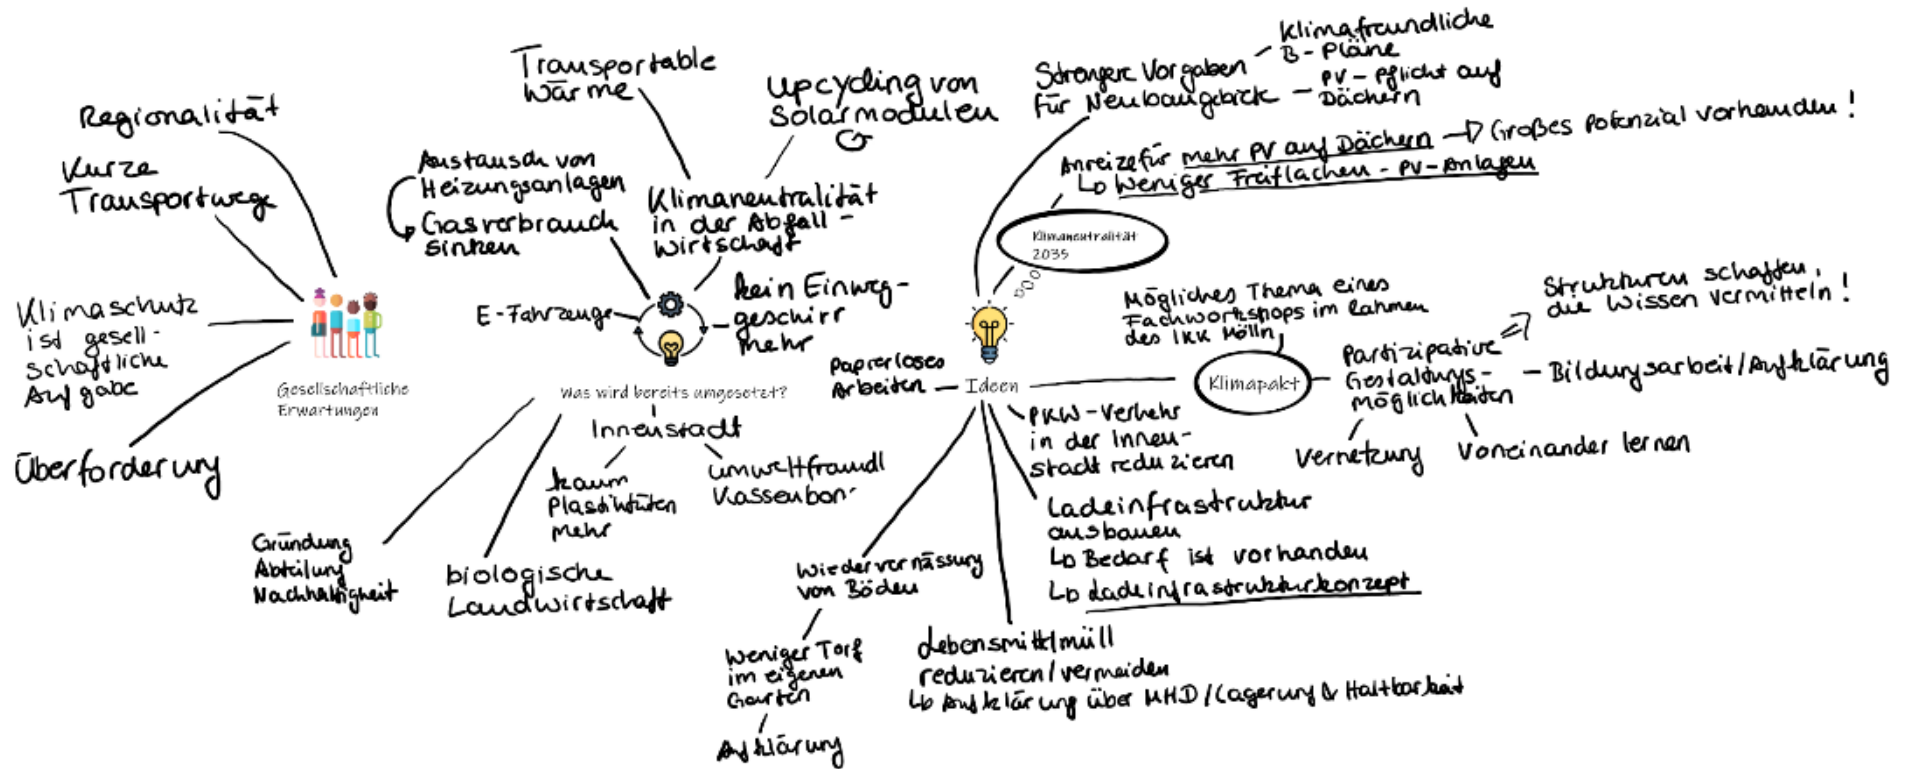 Regionalität
Kurze
Transportwege
Klimaschutz
ist gesell-
schaftliche
Aufgabe
Überforderung
Gesellschaftliche
Erwartungen
Transportable
Wärme
Upcycling von
Solarmodulen
Austausch von
Heizungsanlagen
Gasverbrauch
sinken
Klimaneutralität
in der Abfall-
wirtschaft
E-Fahrzeuge
kein Einweg-
geschirr
mehr
Was wird bereits umgesetzt?
Innenstadt
kaum
Plastiktüten
mehr
umweltfreundl
Kassenbon
Gründung
Abteilung
Nachhaltigkeit
biologische
Landwirtschaft
Strengere Vorgaben
für Neubaugebiete
Klimafreundliche
B-Pläne
PV-Pflicht auf
Dächern
Anreize für mehr PV auf Dächern → Großes Potenzial vorhanden!
↳ Weniger Freiflächen-PV-Anlagen
Klimaneutralität
2035
Ideen
Papierloses
Arbeiten
Mögliches Thema eines
Fachworkshops im Rahmen
des IKK Mölln
Klimapakt
Partizipative
Gestaltungs-
möglichkeiten
Strukturen schaffen,
die Wissen vermitteln!
Bildungsarbeit/Aufklärung
Vernetzung
Voneinander lernen
PKW-Verkehr
in der Innen-
stadt reduzieren
Ladeinfrastruktur
ausbauen
↳ Bedarf ist vorhanden
↳ Ladeinfrastrukturkonzept
Wiedervernässung
von Böden
Weniger Torf
im eigenen
Garten
Aufklärung
Lebensmittelmüll
reduzieren/vermeiden
↳ Aufklärung über MHD/Lagerung & Haltbarkeit